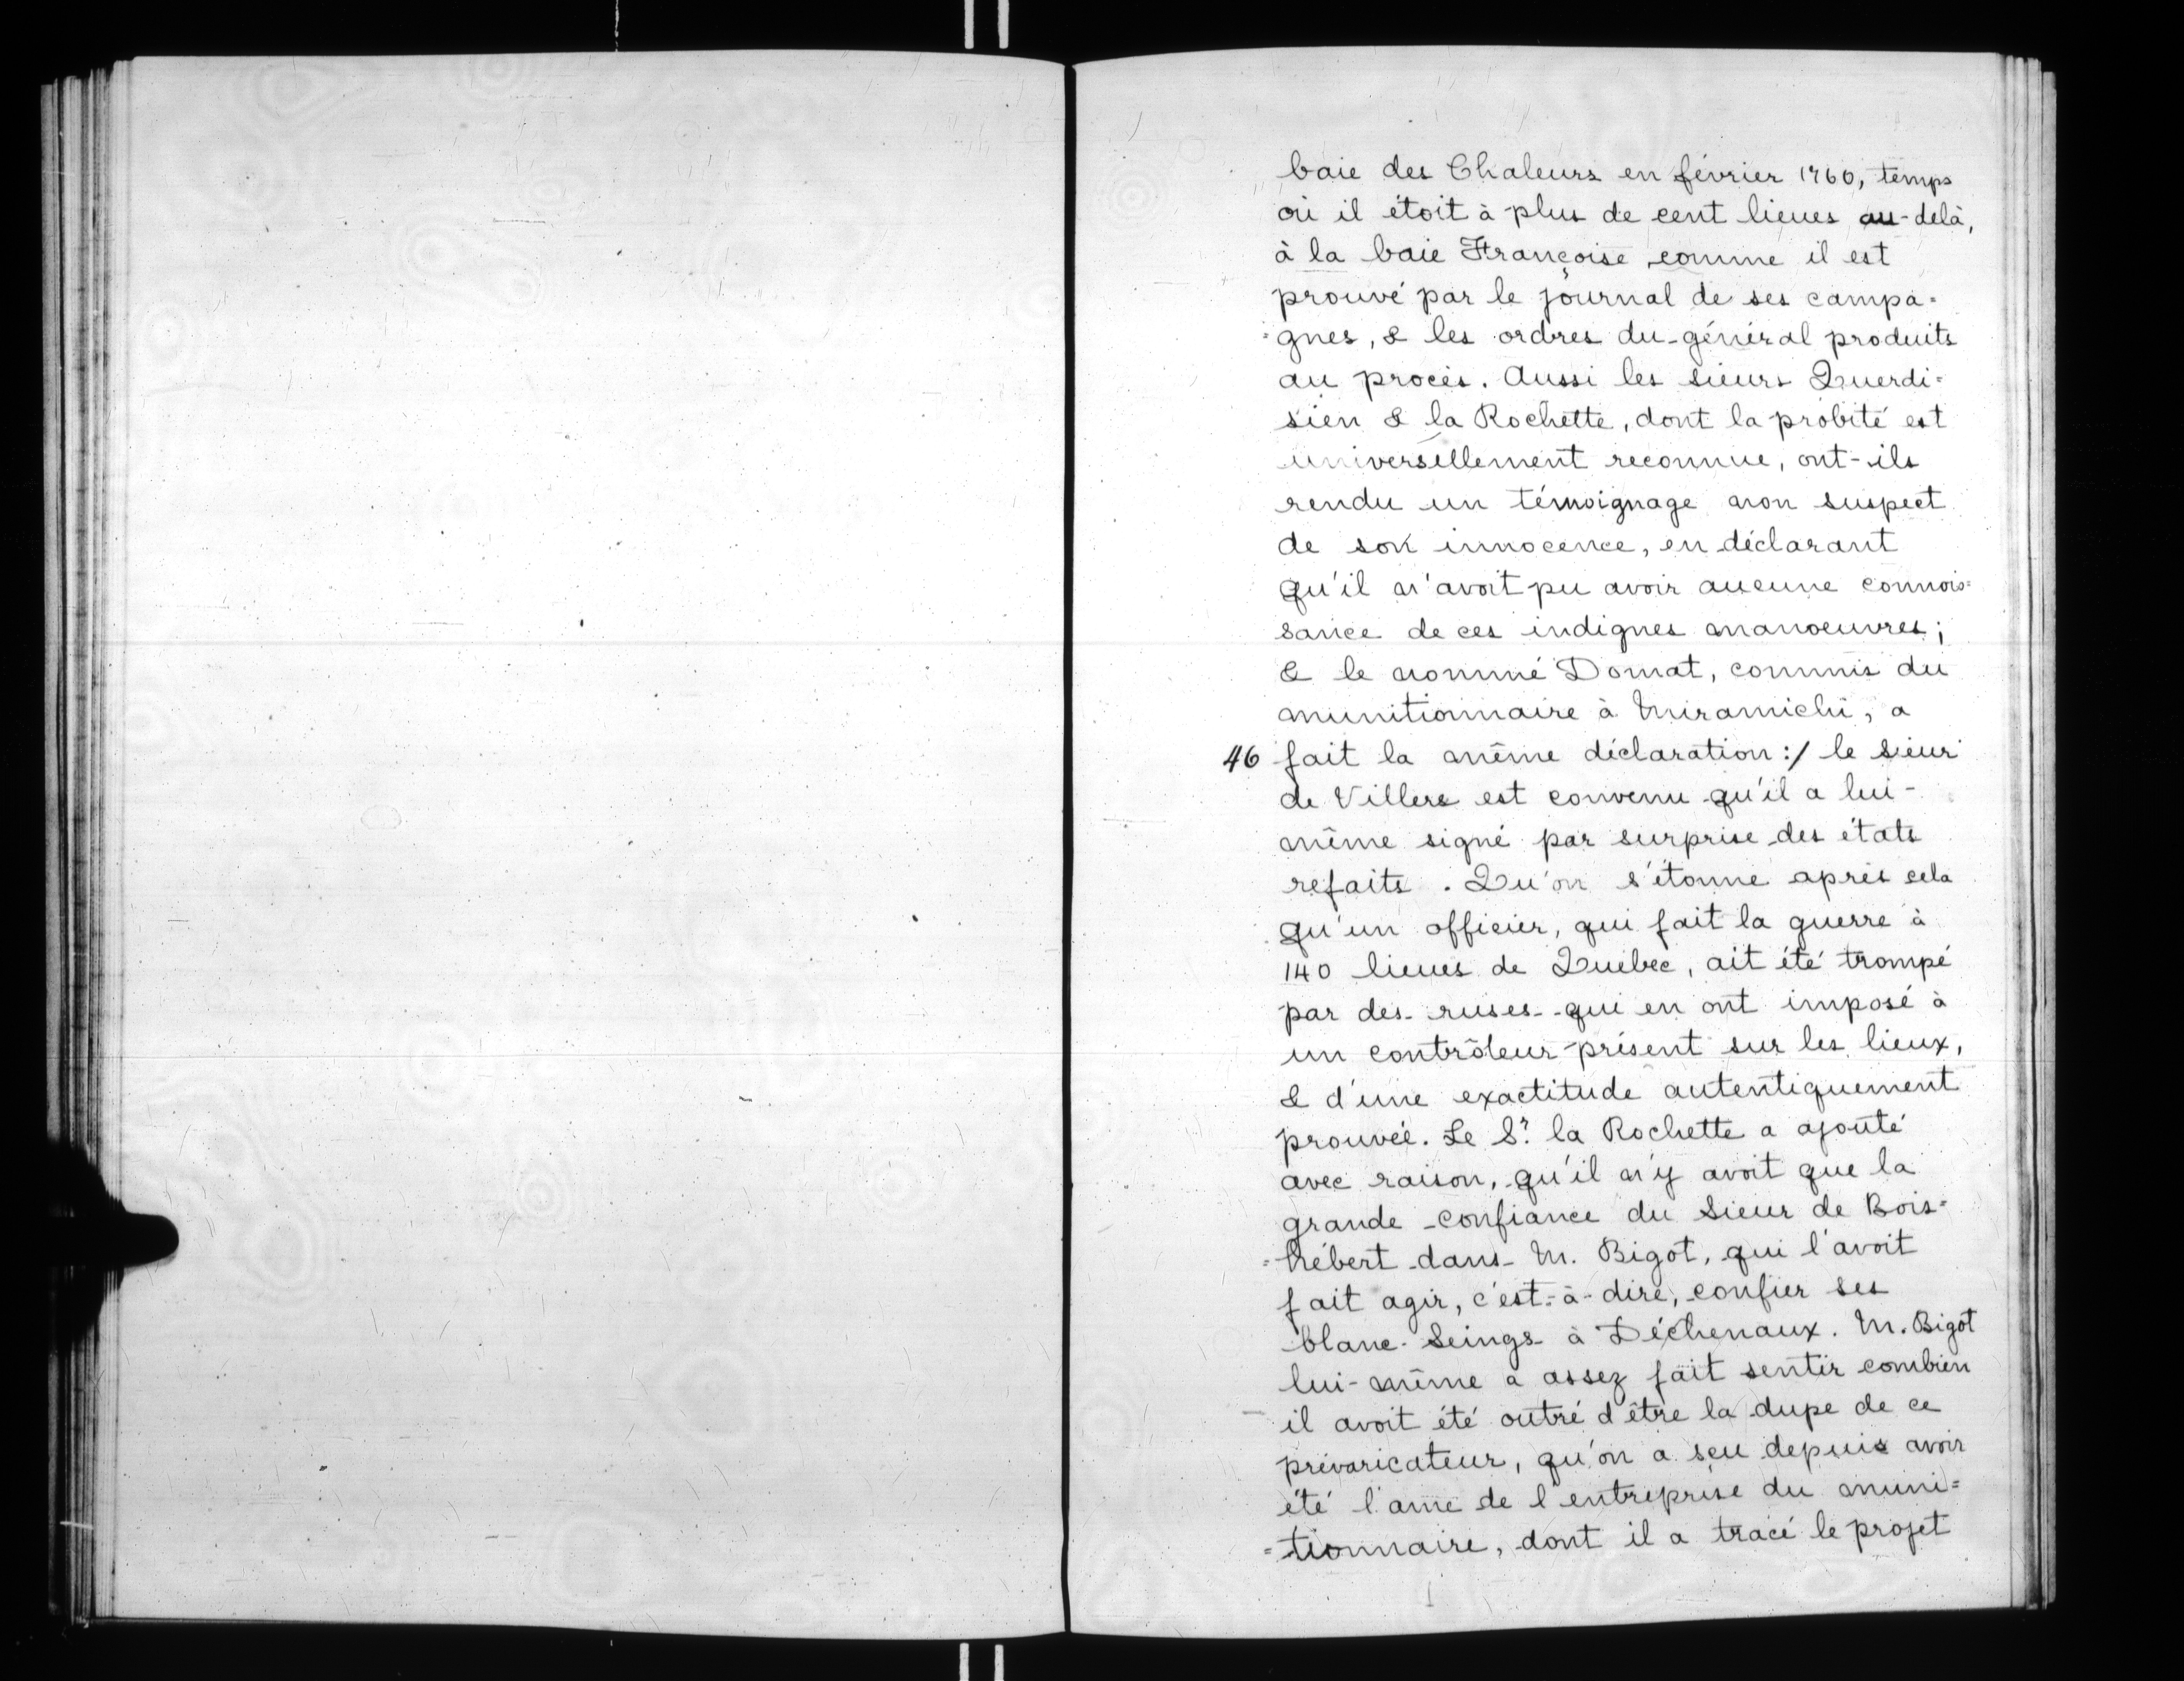 baie des Chaleurs en février 1760, temps
où il étoit à plus de cent lieues au-delà,
à la baie Françoise comme il est
prouvé par le journal de ses campa=
=gnes, & les ordres du général produits
au procès. Aussi les sieurs Querdi=
sien & la Rochette, dont la probité est
universellement reconnue, ont-ils
rendu un témoignage non suspect
de son innocence, en déclarant
qu'il n'avoit pu avoir aucune connois=
sance de ces indignes manoeuvres;
& le nommé Domat, commis du
munitionnaire à Miramichi, a
46 fait la même déclaration:/ le Sieur
de Villers est convenu qu'il a lui-
même signé par surprise des états
refaits. Qu'on s'étonne après cela
qu'un officier, qui fait la guerre à
140 lieues de Québec, ait été trompé
par des ruses qui en ont imposé à
un contrôleur présent sur les lieux,
& d'une exactitude autentiquement
prouvée. Le Sr. la Rochette a ajouté
avec raison, qu'il n'y avoit que la
grande confiance du Sieur de Bois=
=hébert dans M. Bigot, qui l'avoit
fait agir, c'est-à-dire, confier ses
blanc-Seings à Déchenaux. M. Bigot
lui-même a assez fait sentir combien
il avoit été outré d'être la dupe de ce
prévaricateur, qu'on a sçu depuis avoir
été l'ame de l'entreprise du muni=
=tionnaire, dont il a tracé le projet